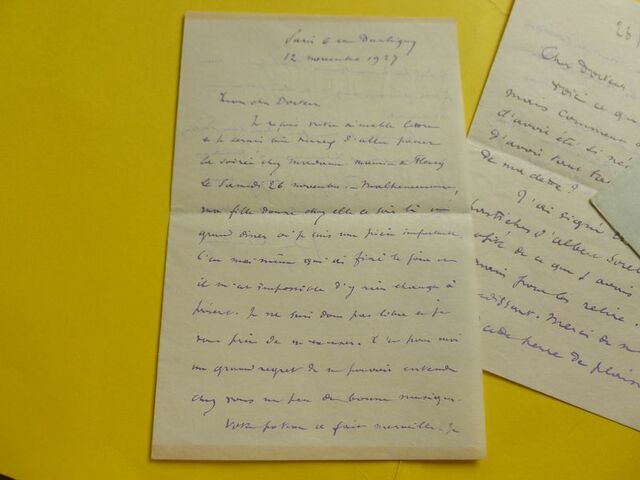 Paris 6 rue Daubigny
12 novembre 1927
Mon cher Docteur
Je reçois votre aimable lettre
et je serais très heureux d'aller passer
la soirée chez Madame Maurice de Fleury
le Samedi 26 novembre. Malheureusement,
ma fille donne chez elle ce soir là un
grand diner où je suis une pièce importante.
C'est moi même qui ai fixé le jour et
il m'est impossible d'y rien changer à
présent. Je ne suis donc pas libre et je
vous prie de m'excuser. C'est pour moi
un grand regret de ne pouvoir entendre
chez vous un peu de bonne musique.
Votre potion a fait merveille. Je
26
Cher Docteur,
voici ce que
mais comment
d'avoir été si
d'avoir tant
de ma dette ?
J'ai signé
pastiches d'Albert Sorel
de ce que j'avais
pour les relire.
Merci de
de plaisir